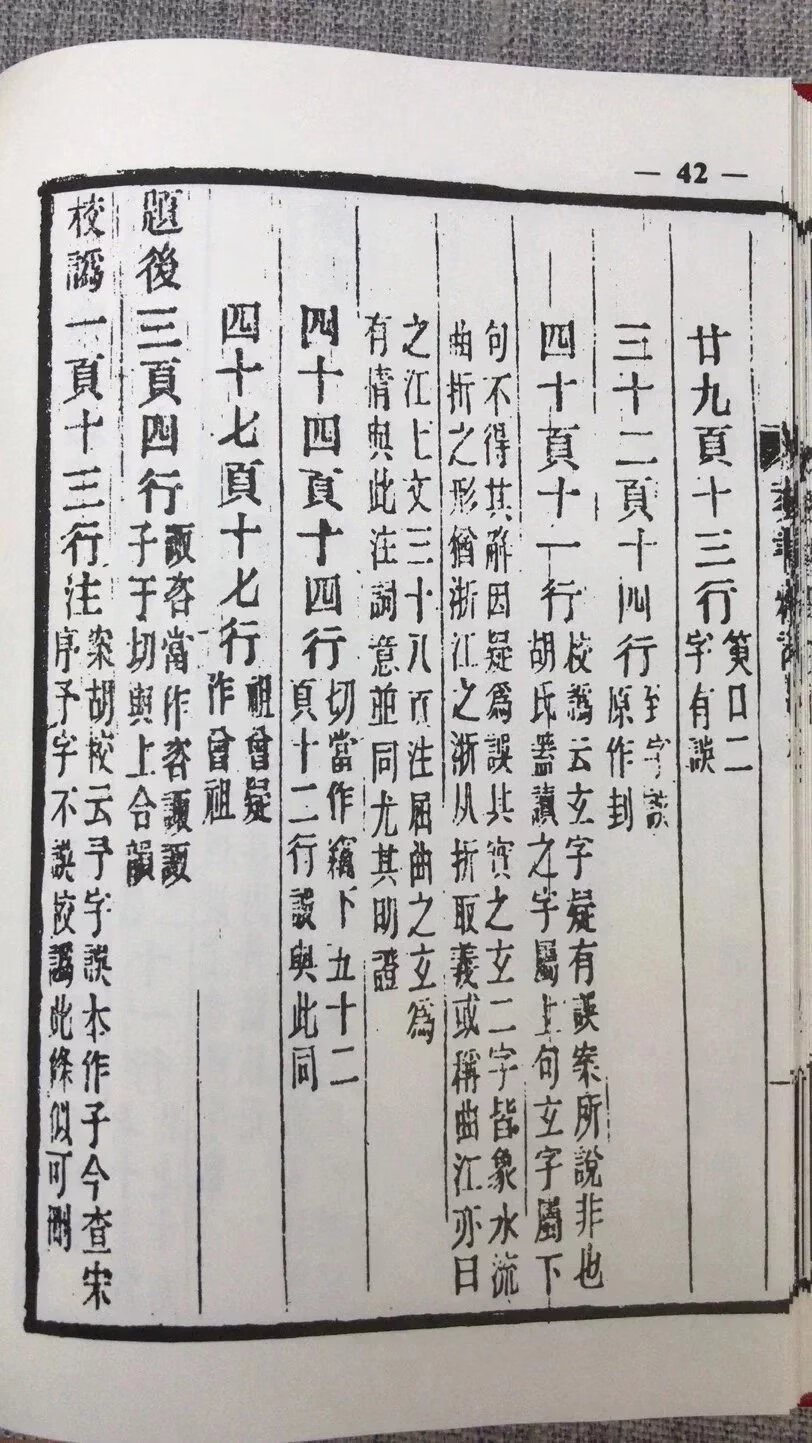 — 42 —
廿九頁十三行
筼口二
字有誤
三十二頁十四行
到字誤
原作封
四十頁十一行
校譌云玄字疑有誤案所說非也
胡氏蓋讀之字屬上句玄字屬下
句不得其解因疑爲誤其實之玄二字皆象水流
曲折之形猶浙江之浙从折取義或稱曲江亦曰
之江上文三十八頁注屈曲之玄爲
有情與此注詞意並同尤其明證
四十四頁十四行
切當作竊下五十二
頁十二行誤與此同
四十七頁十七行
祖曾疑
作曾祖
題後三頁四行
諏咨當作咨諏諏
子于切與上合韻
校譌一頁十三行注
案胡校云予字誤本作子今查宋
序予字不誤校譌此條似可刪